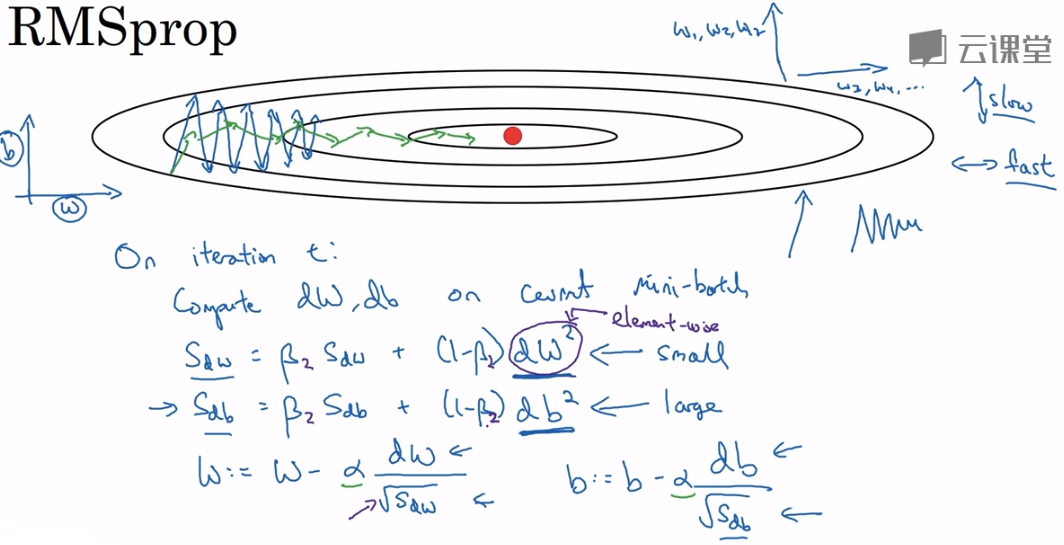 RMSprop
w₁, w₂, w₂
云课堂
w₃, w₄, ...
slow
fast
b
w
On iteration t:
Compute dW, db on current mini-batch
element-wise
S_dw = β₂ S_dw + (1-β₂) dW² ← small
→ S_db = β₂ S_db + (1-β₂) db² ← large
W := W - α dW / √S_dw ←
b := b - α db / √S_db ←